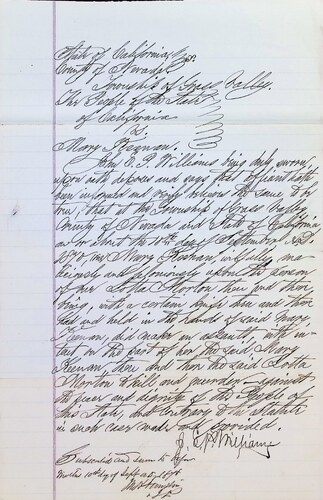 State of California } ss.
County of Nevada
Township of Grass Valley.
The People of the State
of California
vs.
Mary Keenan.
John E. P. Williams being duly sworn,
upon oath deposes and says, that affiant hath
been informed and verily believes the same to be
true; that at the Township of Grass Valley
County of Nevada and State of California
on or about the 10th day of September A.D.
one Mary Keenan, wilfully, ma-
liciously and feloniously upon the person
of one Lotta Morton then and there
being, with a certain knife then and there
had and held in the hands of said Mary
Keenan, did make an assault, with in-
tent on the part of her the said Mary
Keenan, then and there the said Lotta
Morton to kill and murder. Against
the peace and dignity of the People of
this State, and Contrary to the Statute
in such case made and provided.
J. E. P. Williams
Subscribed and sworn to before
me this 10th day of Sept A.D.
J.P.